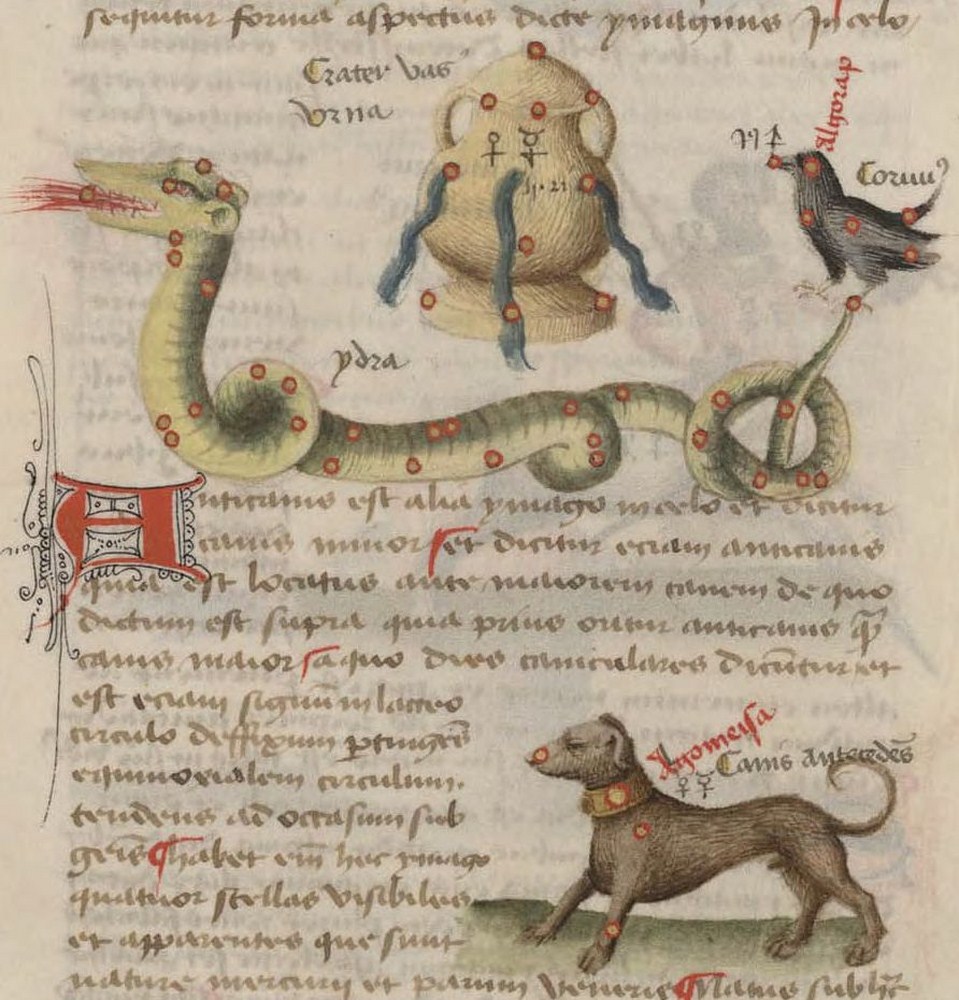 sequitur forma aspectus dicte ymaginis In celo
Crater vas
vrna
Algorap
Coruus
ydra
Anticanis est alia ymago in celo et dicitur
canis minor et dicitur eciam anticanis
quia est locatus ante maiorem canem de quo
dictum est supra quia prius oritur anticanis q̄
canis maior a quo dies caniculares dicūtur et
est eciam signū in lacteo
circulo deffixum ptingēs
equinoxialem circulum.
tendens ad occasum sub
geīs habet em̄ hec ymago
quatuor stellas visibiles
et apparentes que sunt
nature mercurii et parum veneris Natus sub hͨ
Algomeisa
Canis Antecedēs